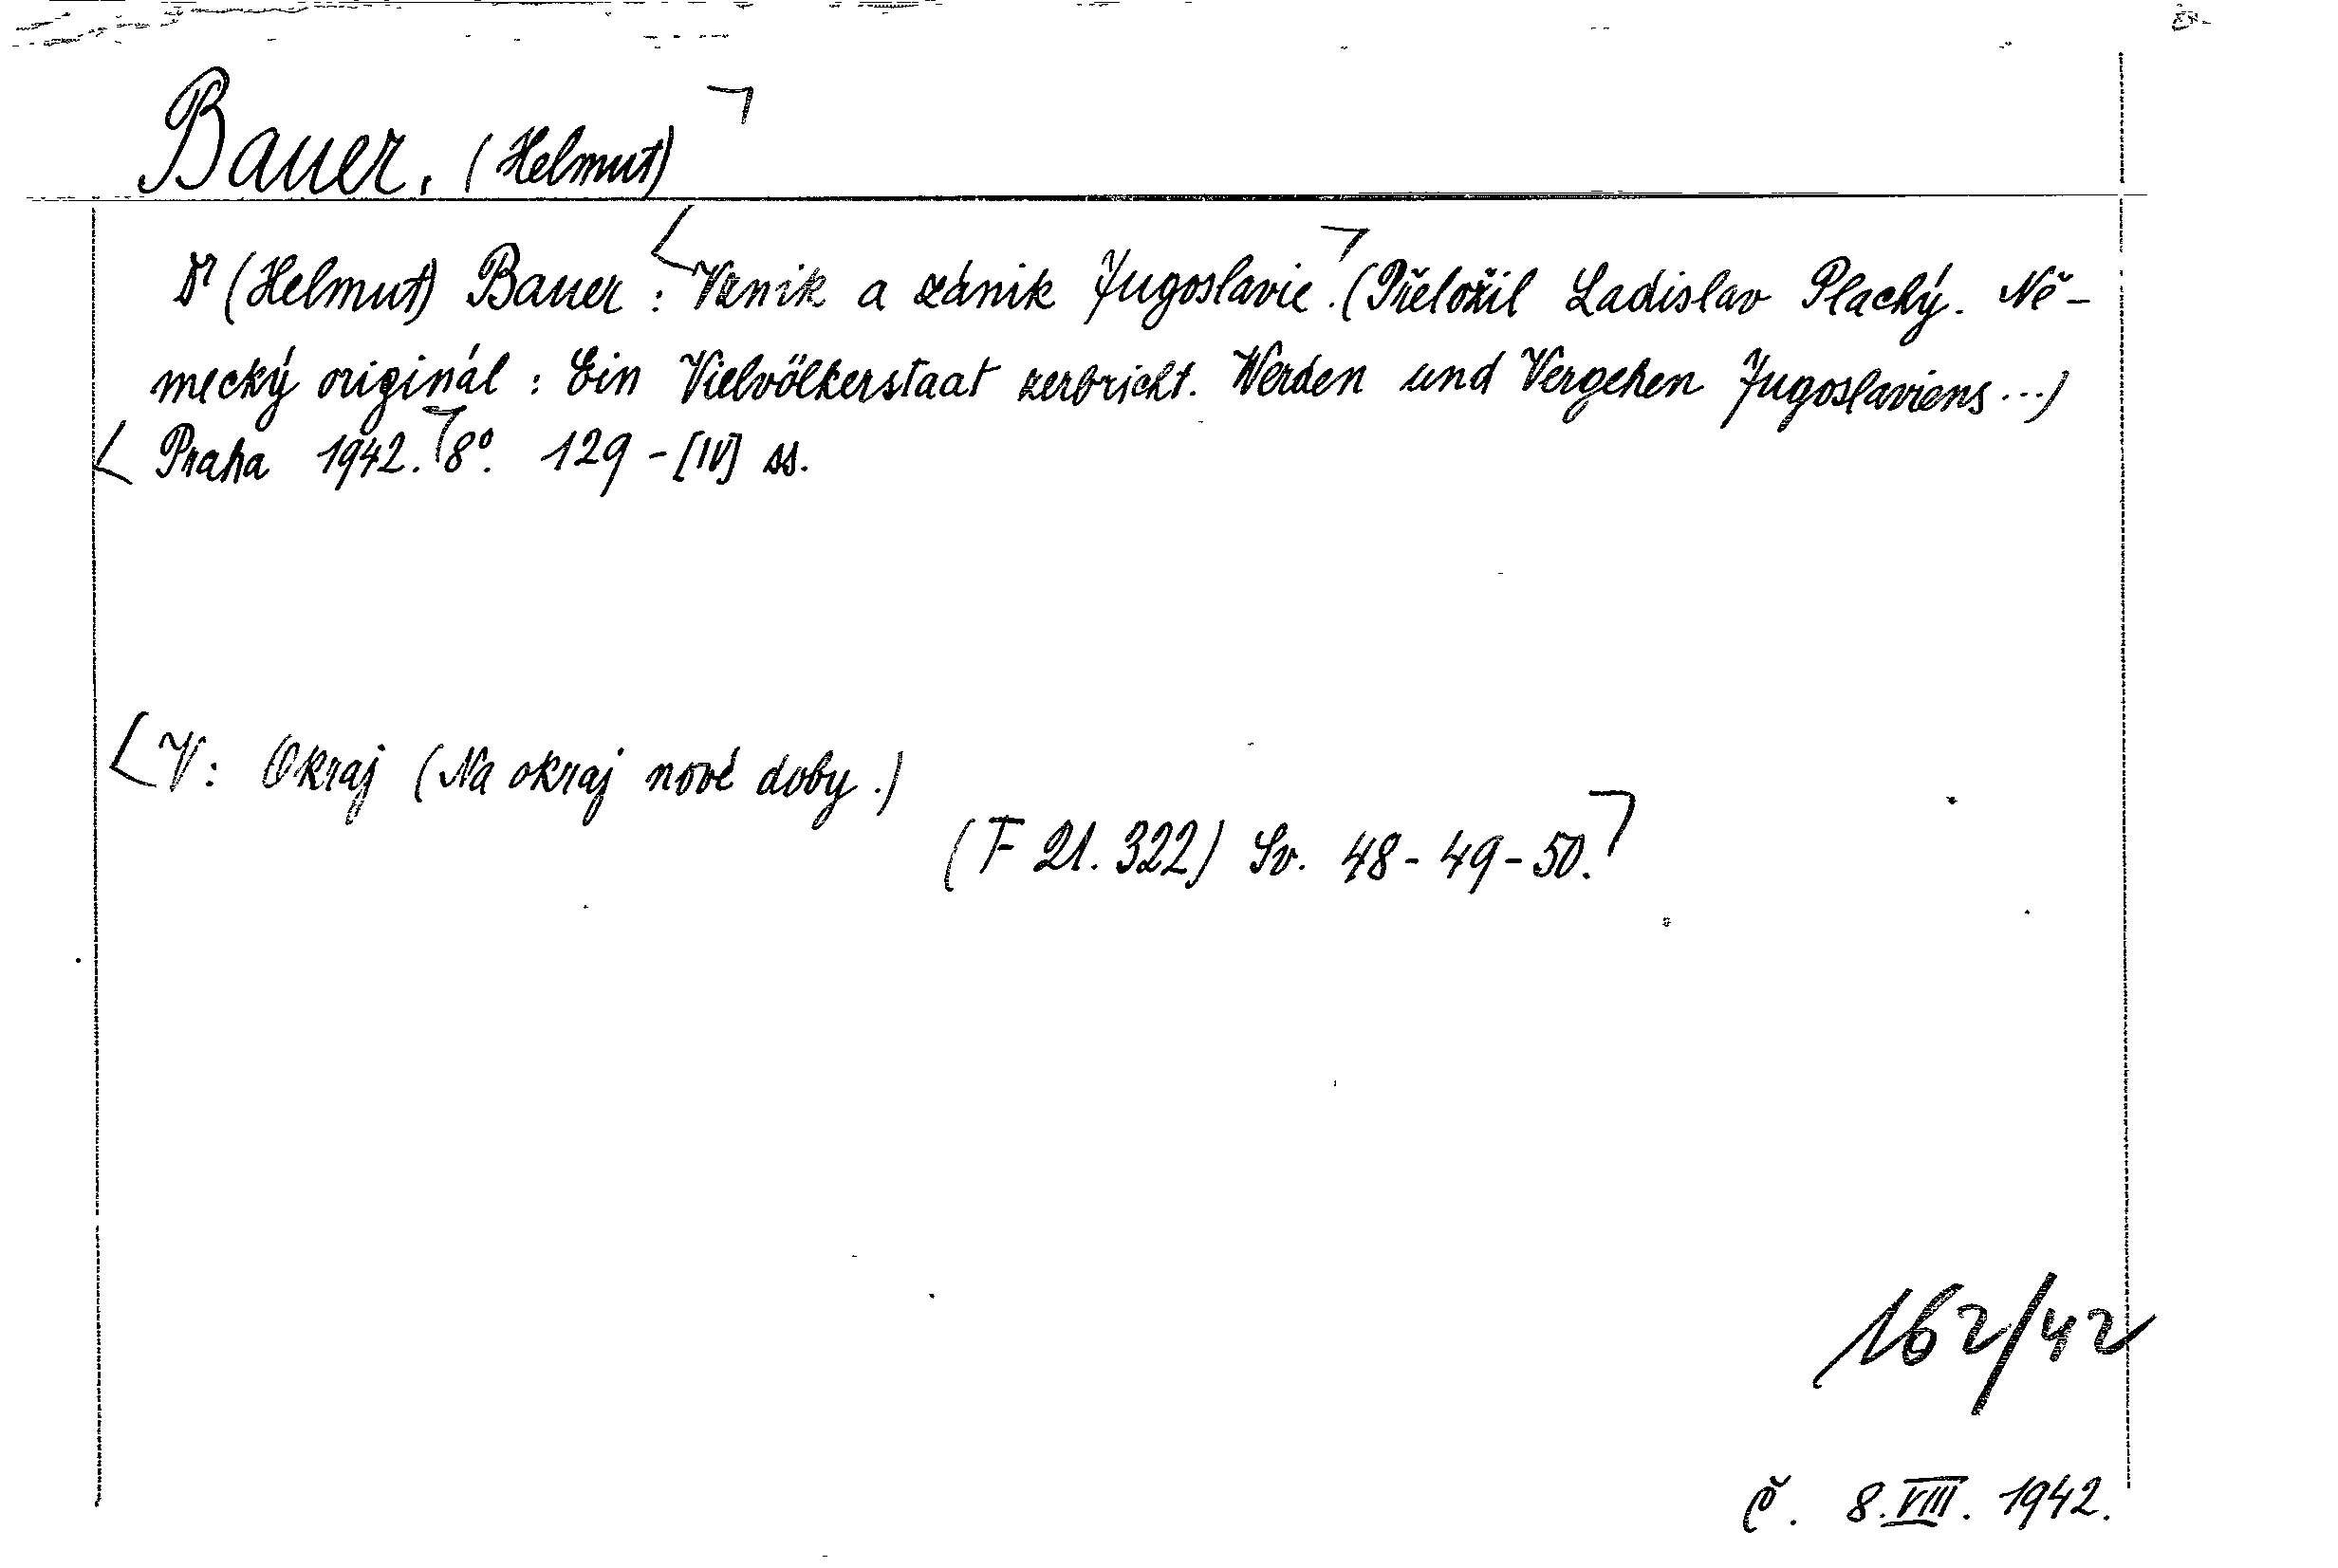 Bauer, (Helmut)
Dr (Helmut) Bauer : Vznik a zánik Jugoslavie. (Přeložil Ladislav Plachý. Ně-
mecký originál : Ein Vielvölkerstaat zerbricht. Werden und Vergehen Jugoslaviens ...)
Praha 1942. 8°. 129 - [IV] ss.
V: Okraj (Na okraj nové doby.)
(F 21.322) Sv. 48 - 49 - 50.
162/42
č. 8. VIII. 1942.